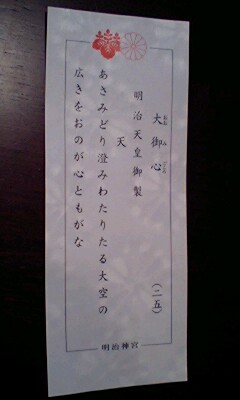 大御心 (二五)
おお み ごころ
明治天皇御製
天
あさみどり澄みわたりたる大空の
広きをおのが心ともがな
明治神宮